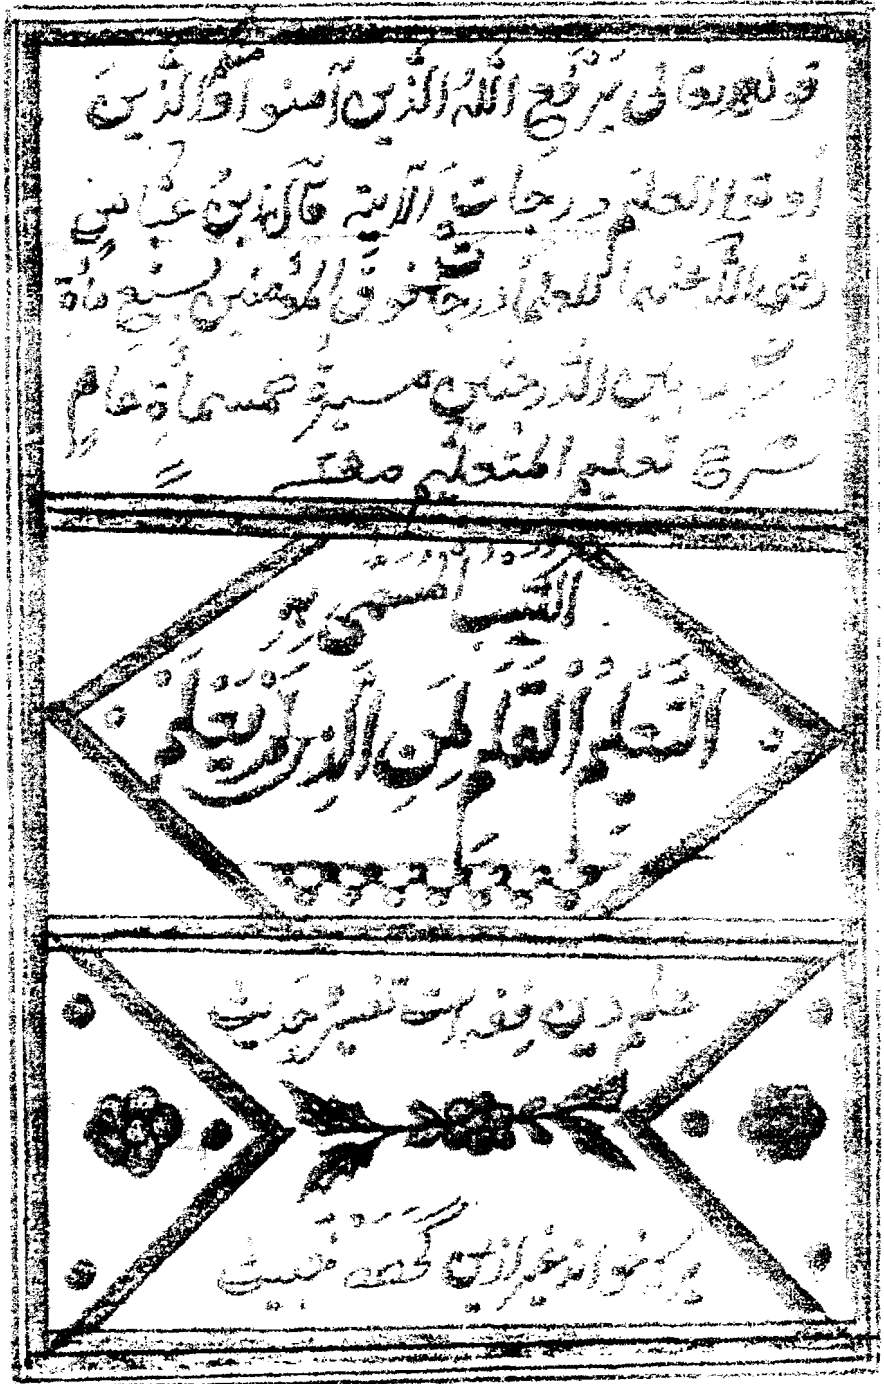 قوله تعالى يَرْفَعِ اللّٰهُ الَّذِينَ آمنوا منكم وَالَّذِينَ
أوتوا العلم درجاتٍ الآية قال ابنُ عبّاسٍ
رضي الله عنهما للعلماء درجات فوق المؤمنين بسبع مائة
درجة بين الدرجتين مسيرةُ خمسمائةِ عامٍ
شرح تعليم المتعلّم
الكتٰب المُسَمّى بهِ
التَّعَلُّمُ الْقَلَم لِمَنِ الَّذِي لَمْ يَعْلَمْ
علم دین فقه است تفسیر و حدیث
هر که خواند غیر ازین گَردَد خَبیث